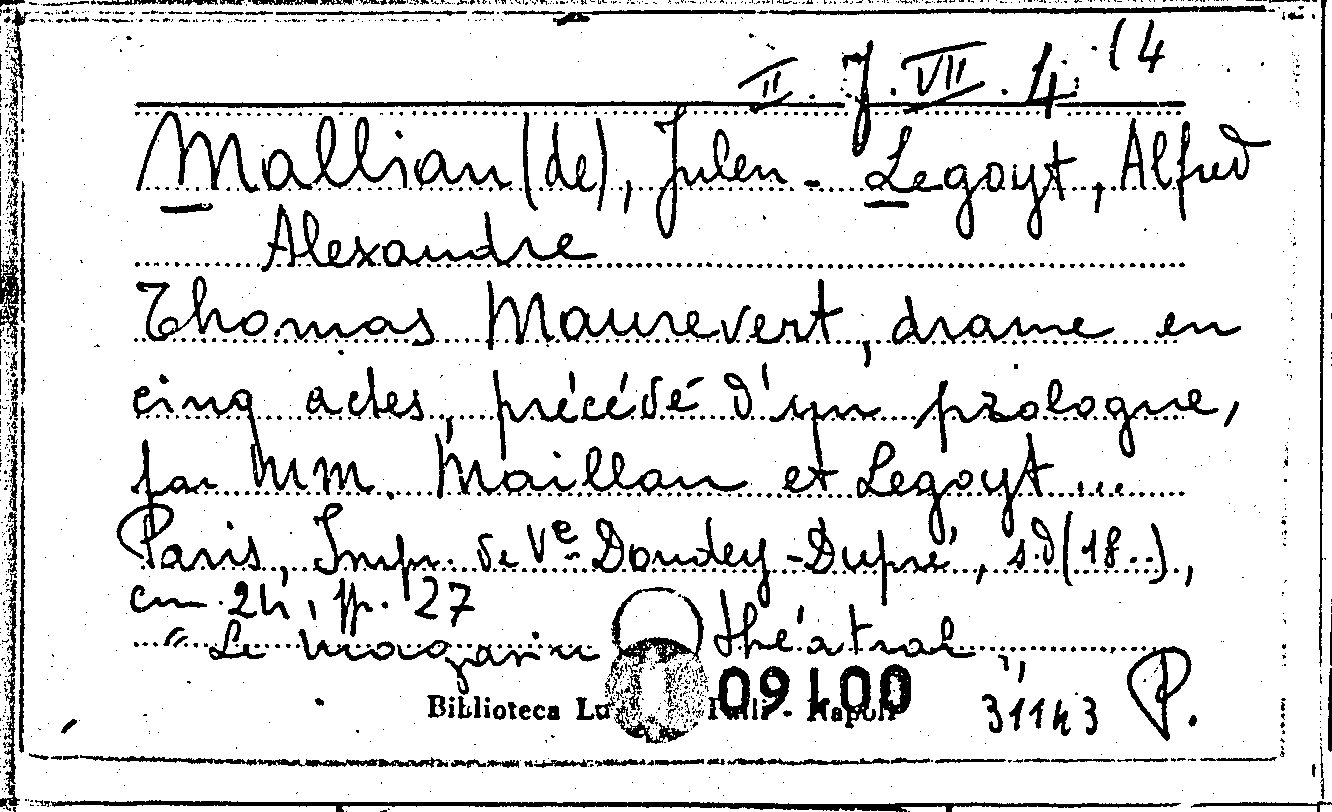 II. J. VII. 4. (4
Mallian (de), Julen - Legoyt, Alfred
Alexandre
Thomas Maurevert, drame en
cinq actes, précédé d'un prologue,
par MM. Maillan et Legoyt ...
Paris, Impr. de Ve Dondey-Dupré, s.d (18..),
cm 24, pp. 27
"Le magasin théâtral"
09400
Biblioteca Lu - Napoli
31143 P.